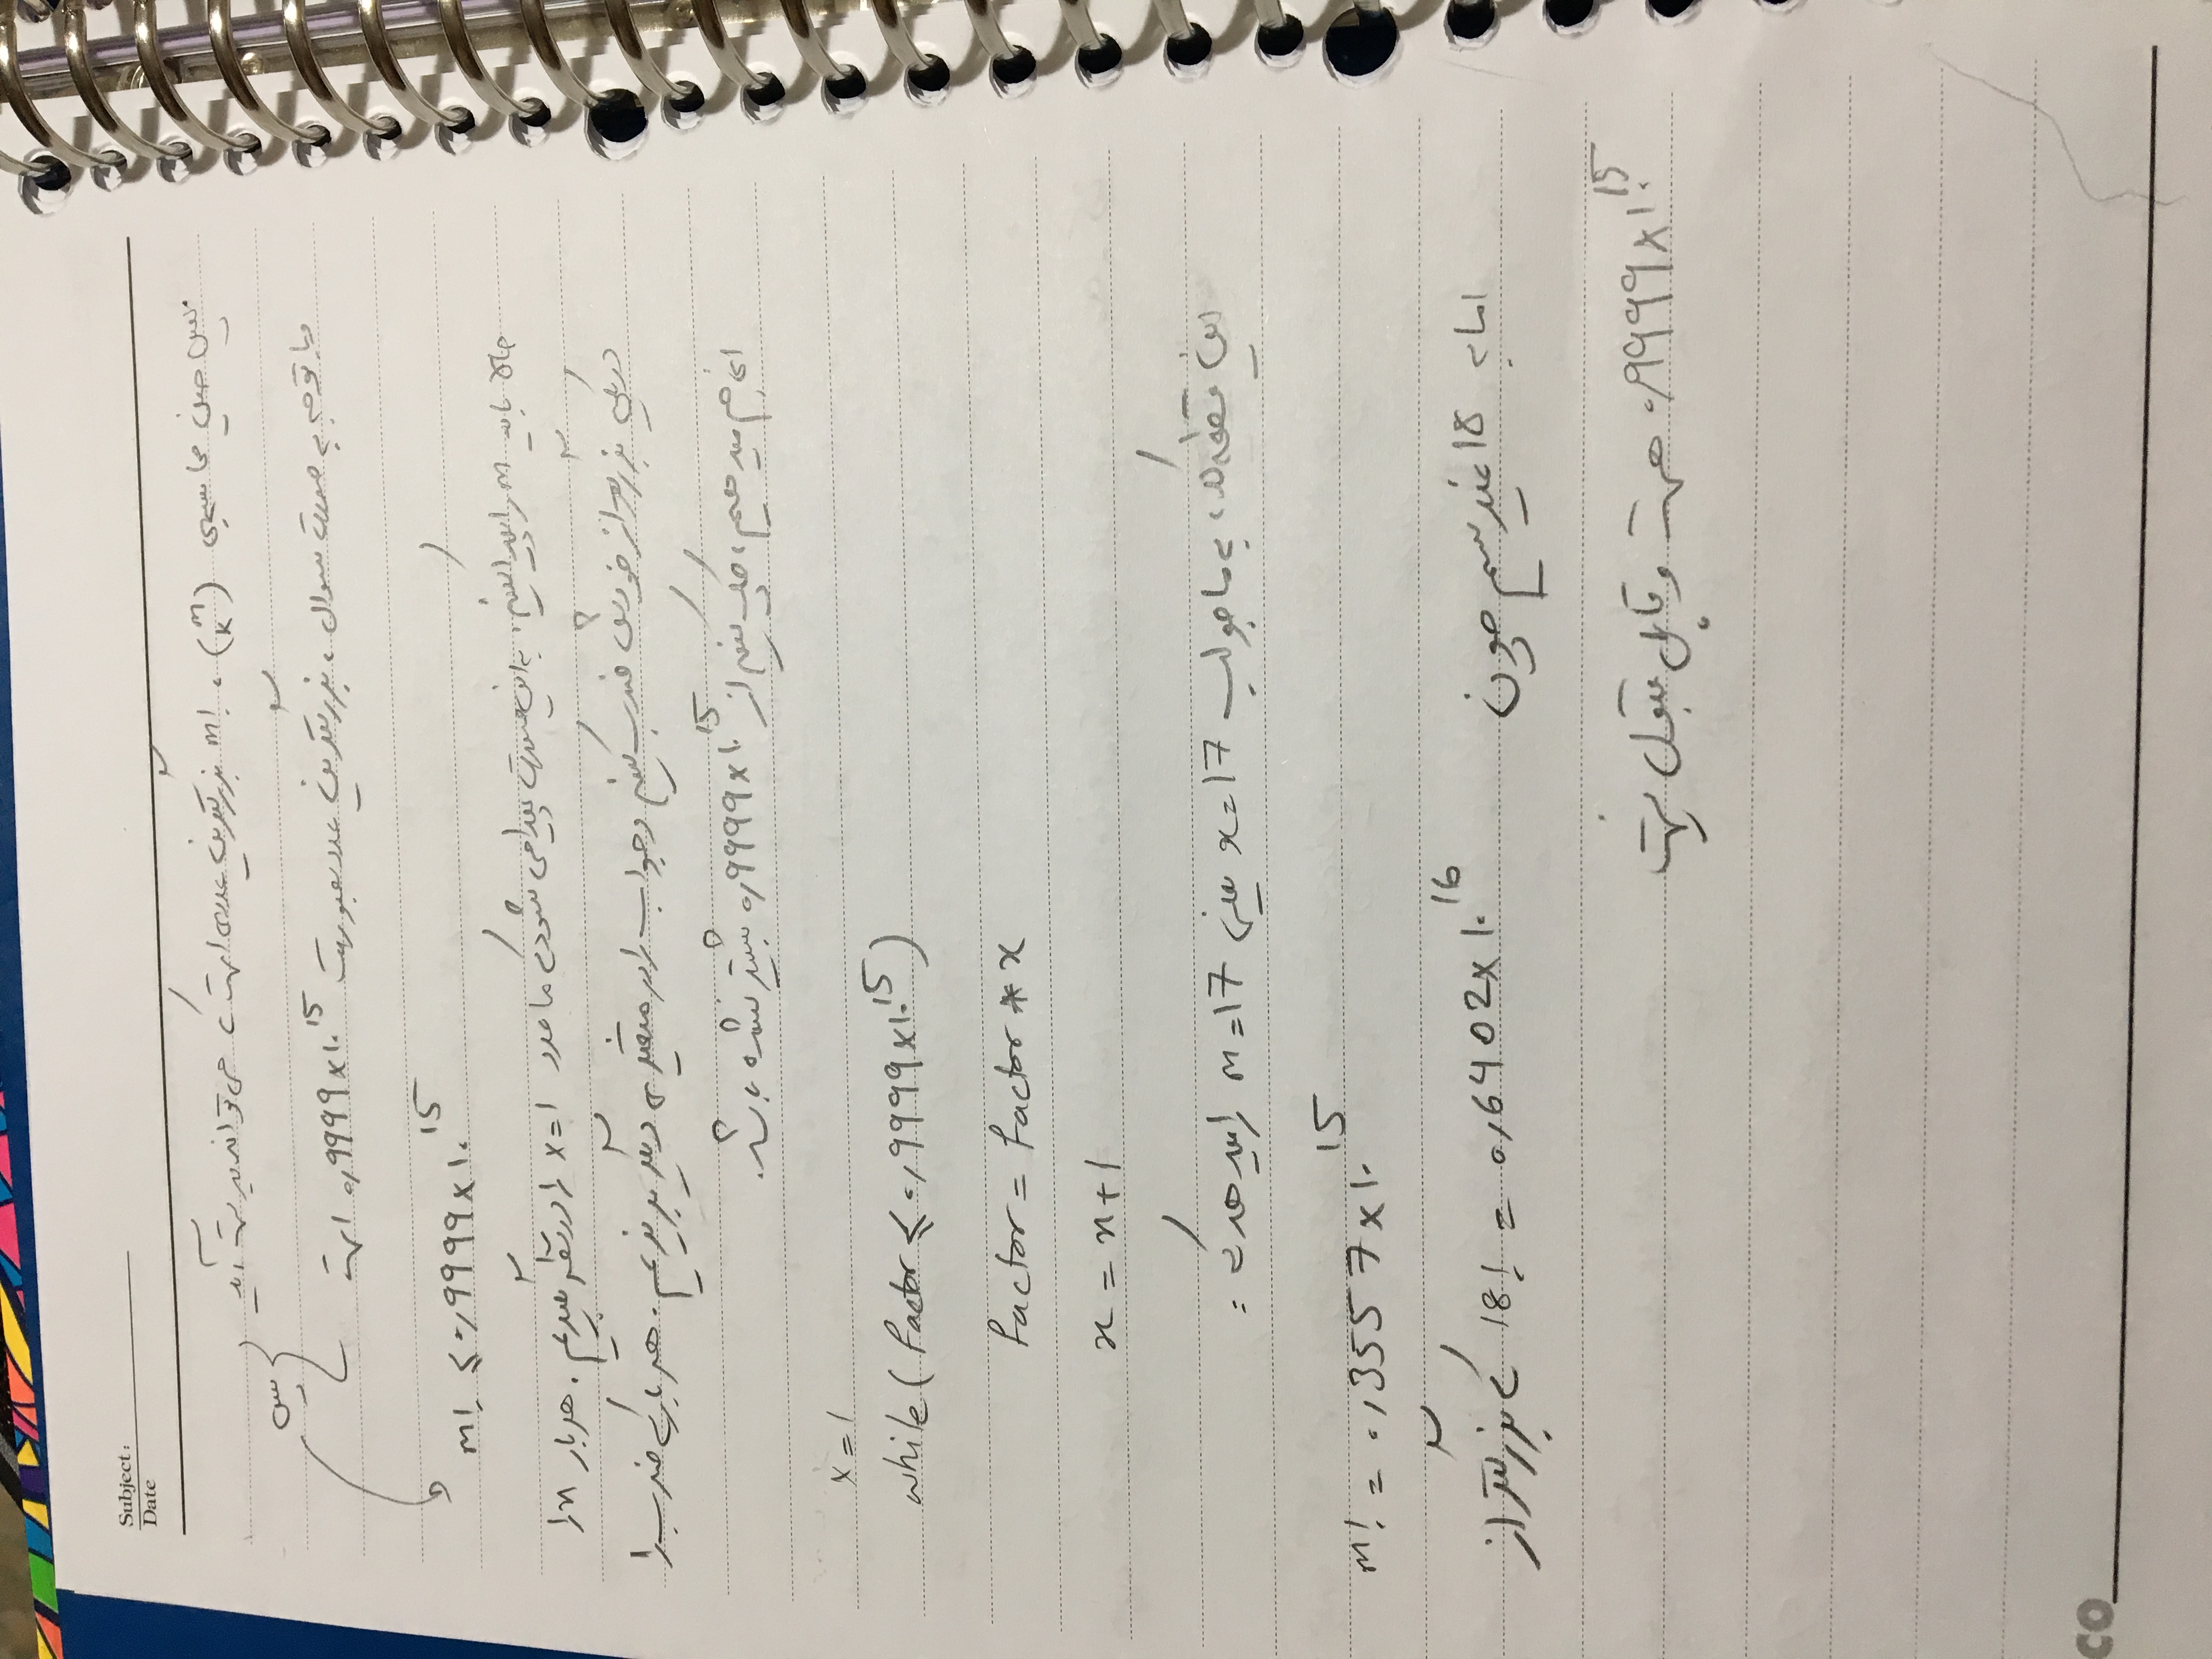 Subject:
Date
پس حین محاسبه‌ی (m k)، m! بزرگترین عددی است که می‌تواند بدست آید
و با توجه به صورت سوال، بزرگترین عدد بصورت 0,9999×10^15 است
پس
m! ≤ 0,9999×10^15
حالا باید m را پیدا کنیم، به این صورت پیدا می شود که ما عدد x=1 را در نظر بگیریم. هر بار x را
در یکی بزرگتر از خودش ضرب کنیم و جواب را در متغیری دیگر بریزیم. هر بار که ضرب را
انجام میدهیم، چک کنیم از 0,9999×10^15 بیشتر نشده باشد.
x=1
while( factor ≤ 0,9999×10^15)
factor = factor * x
x = x+1
این قطعه کد، به ما جواب x=17 یعنی m=17 را میدهد که :
m! = 0,3557×10^15
اما به 18 نمیرسیم چون 18! = 0,6402×10^16 که بزرگتر از
0,9999×10^15 هست و قابل قبول نیست
CO